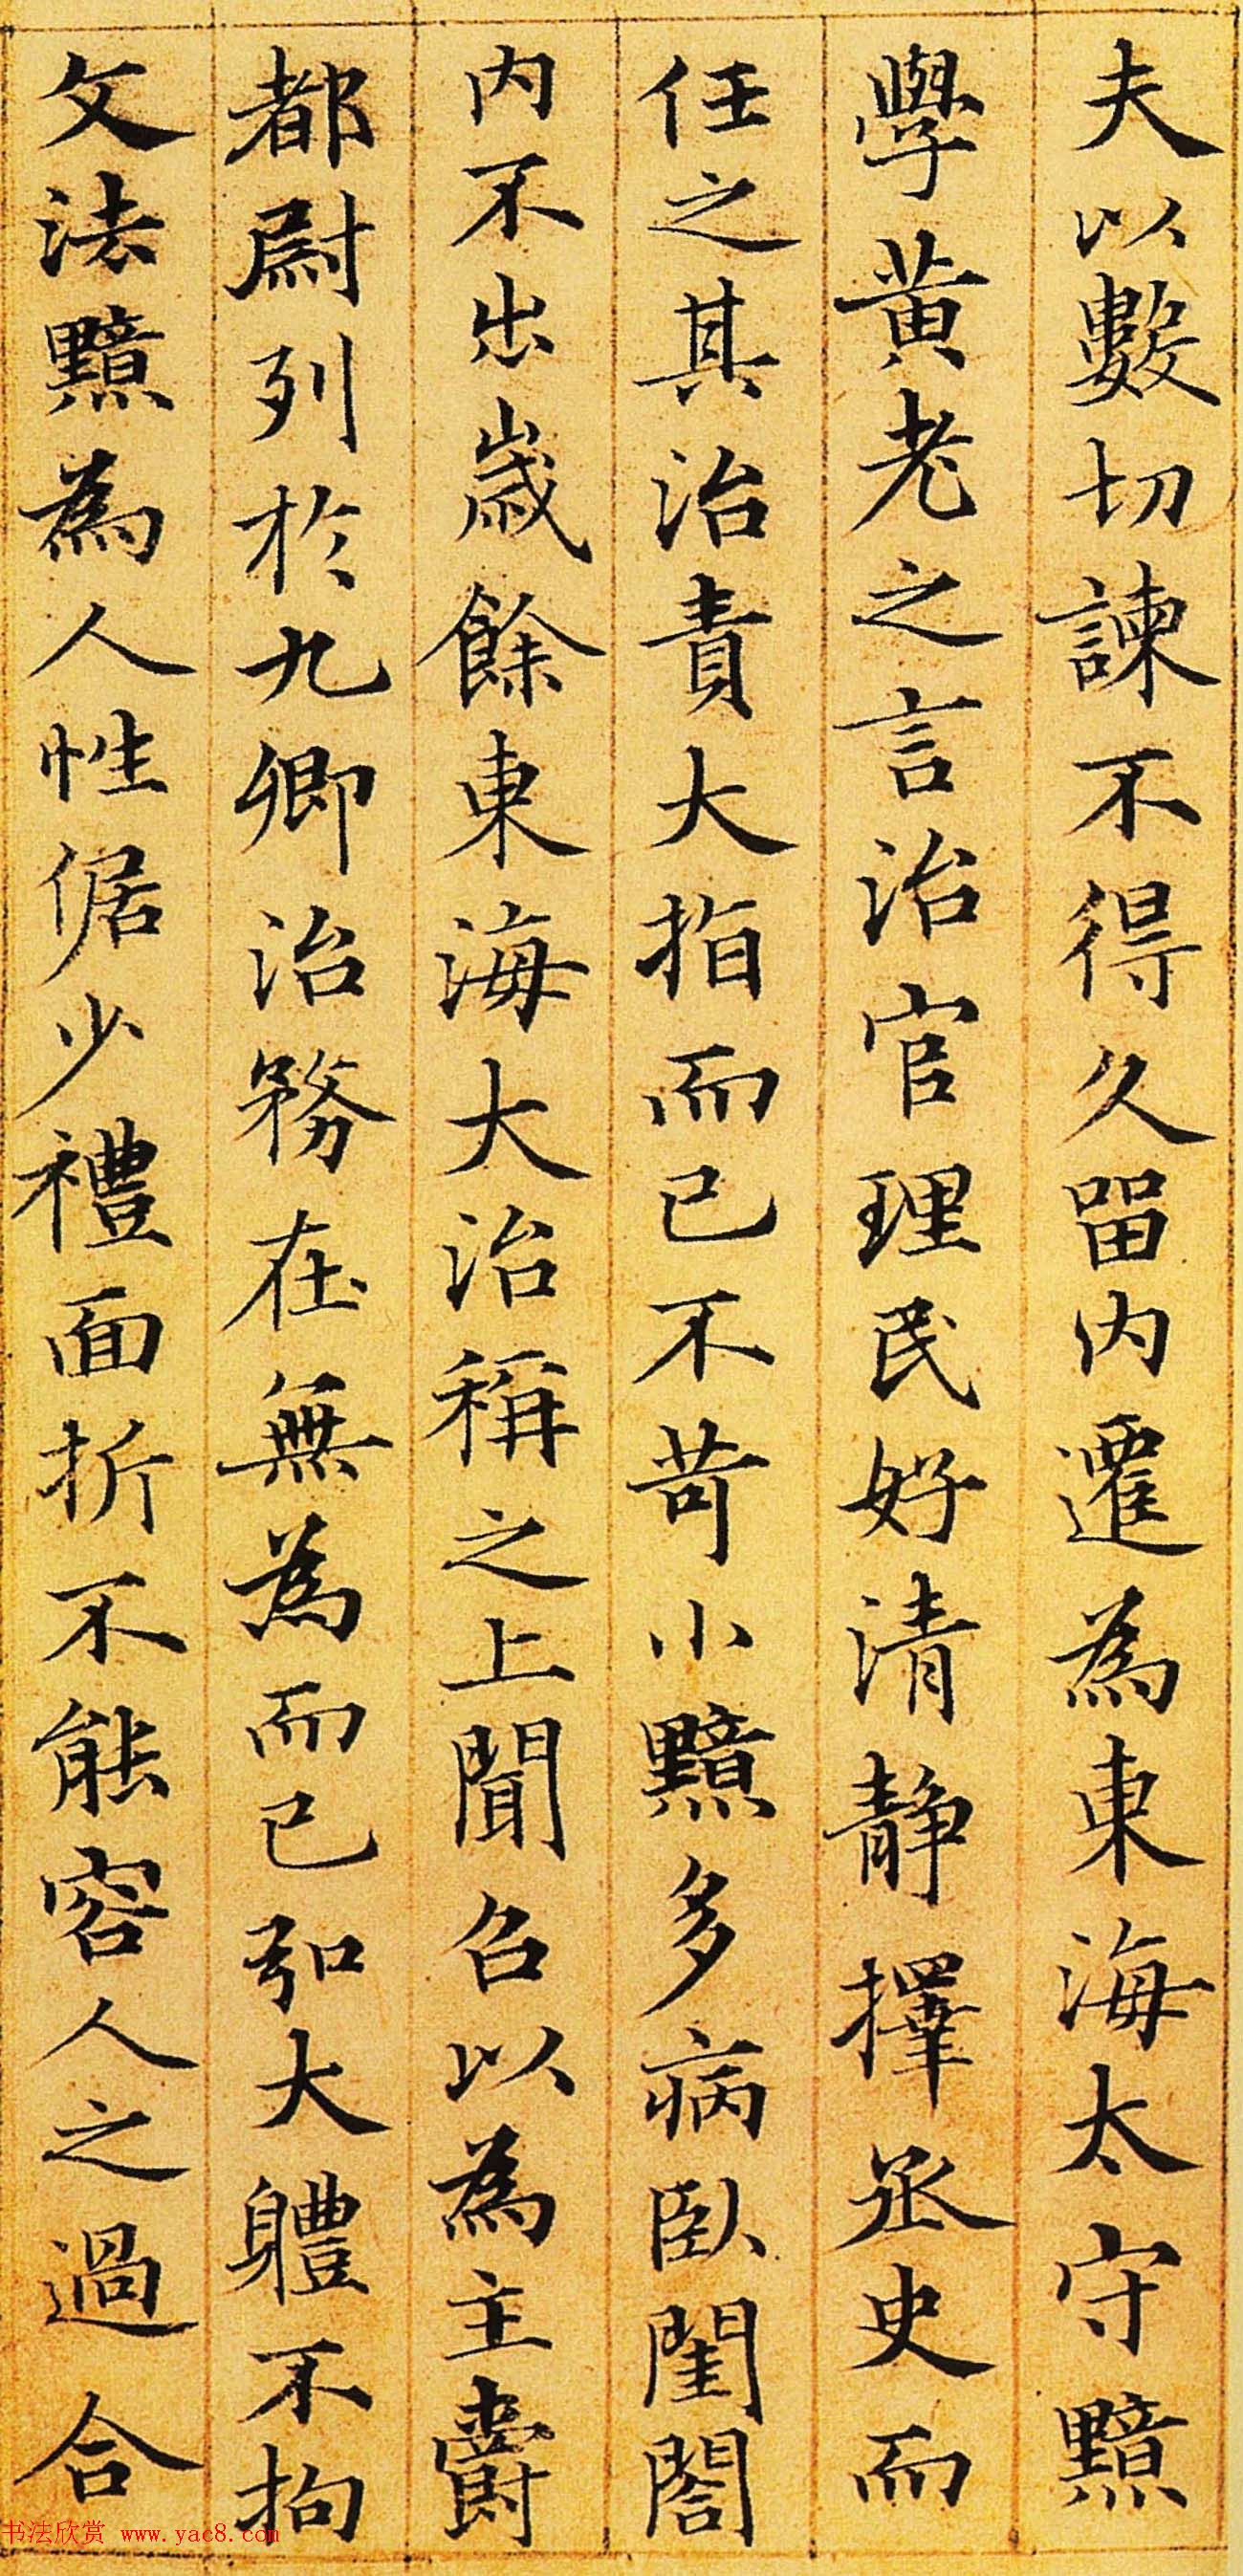 夫以數切諫不得久留内遷為東海太守黯
學黃老之言治官理民好清静擇丞史而
任之其治責大指而已不苛小黯多病臥閨閤
内不出歲餘東海大治稱之上聞召以為主爵
都尉列於九卿治務在無為而已弘大體不拘
文法黯為人性倨少禮面折不能容人之過合
书法欣赏 www.yac8.com